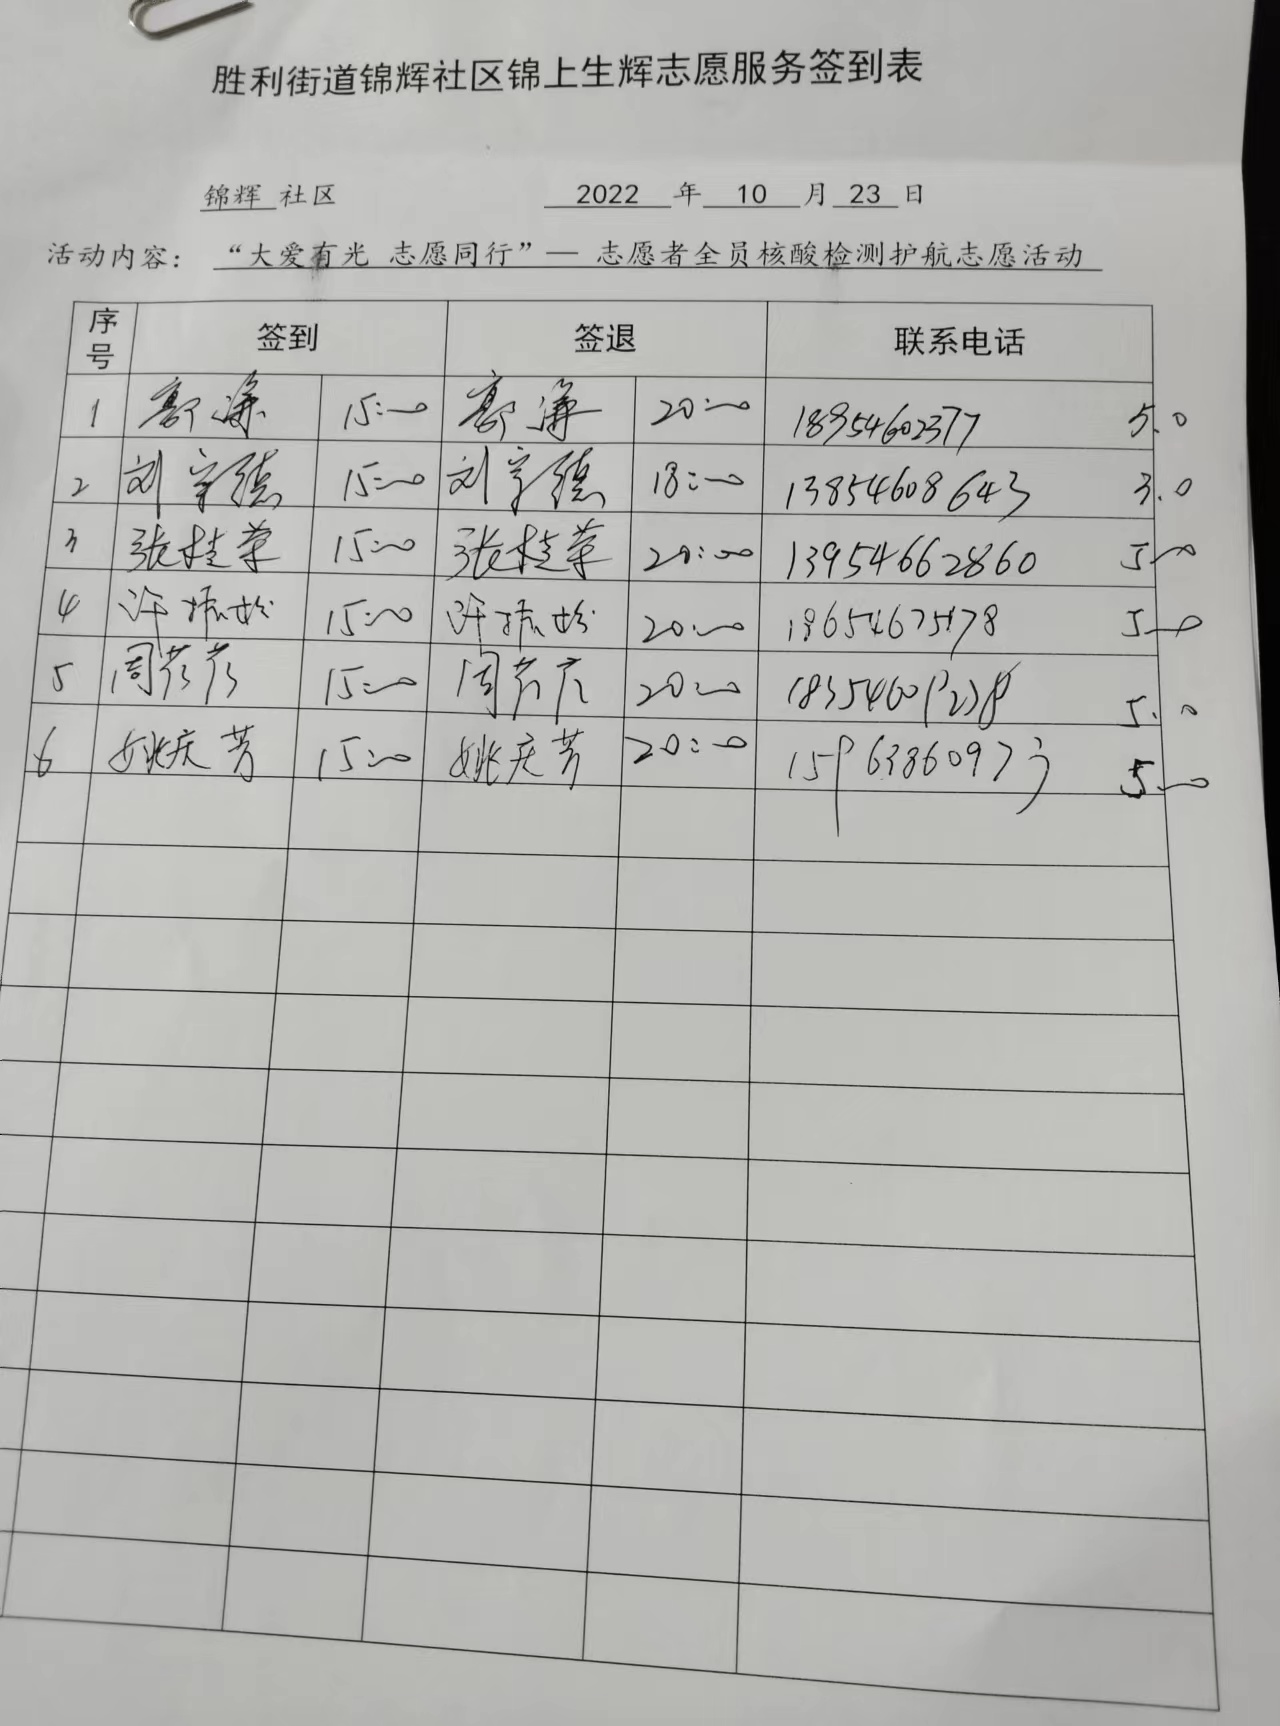 胜利街道锦辉社区锦上生辉志愿服务签到表
锦辉 社区 2022 年 10 月 23 日
活动内容： “大爱有光 志愿同行”— 志愿者全员核酸检测护航志愿活动
序号 签到 签退 联系电话
1 15:00 20:00 18954602377 5.0
2 刘守镇 15:00 刘守镇 18:00 13854608643 3.0
3 张桂荣 15:00 张桂荣 20:00 13954662860 5.0
4 许振 15:00 许振 20:00 5.0
5 周芳芳 15:00 周芳芳 20:00 5.0
6 姚庆芳 15:00 姚庆芳 20:00 15963860973 5.0